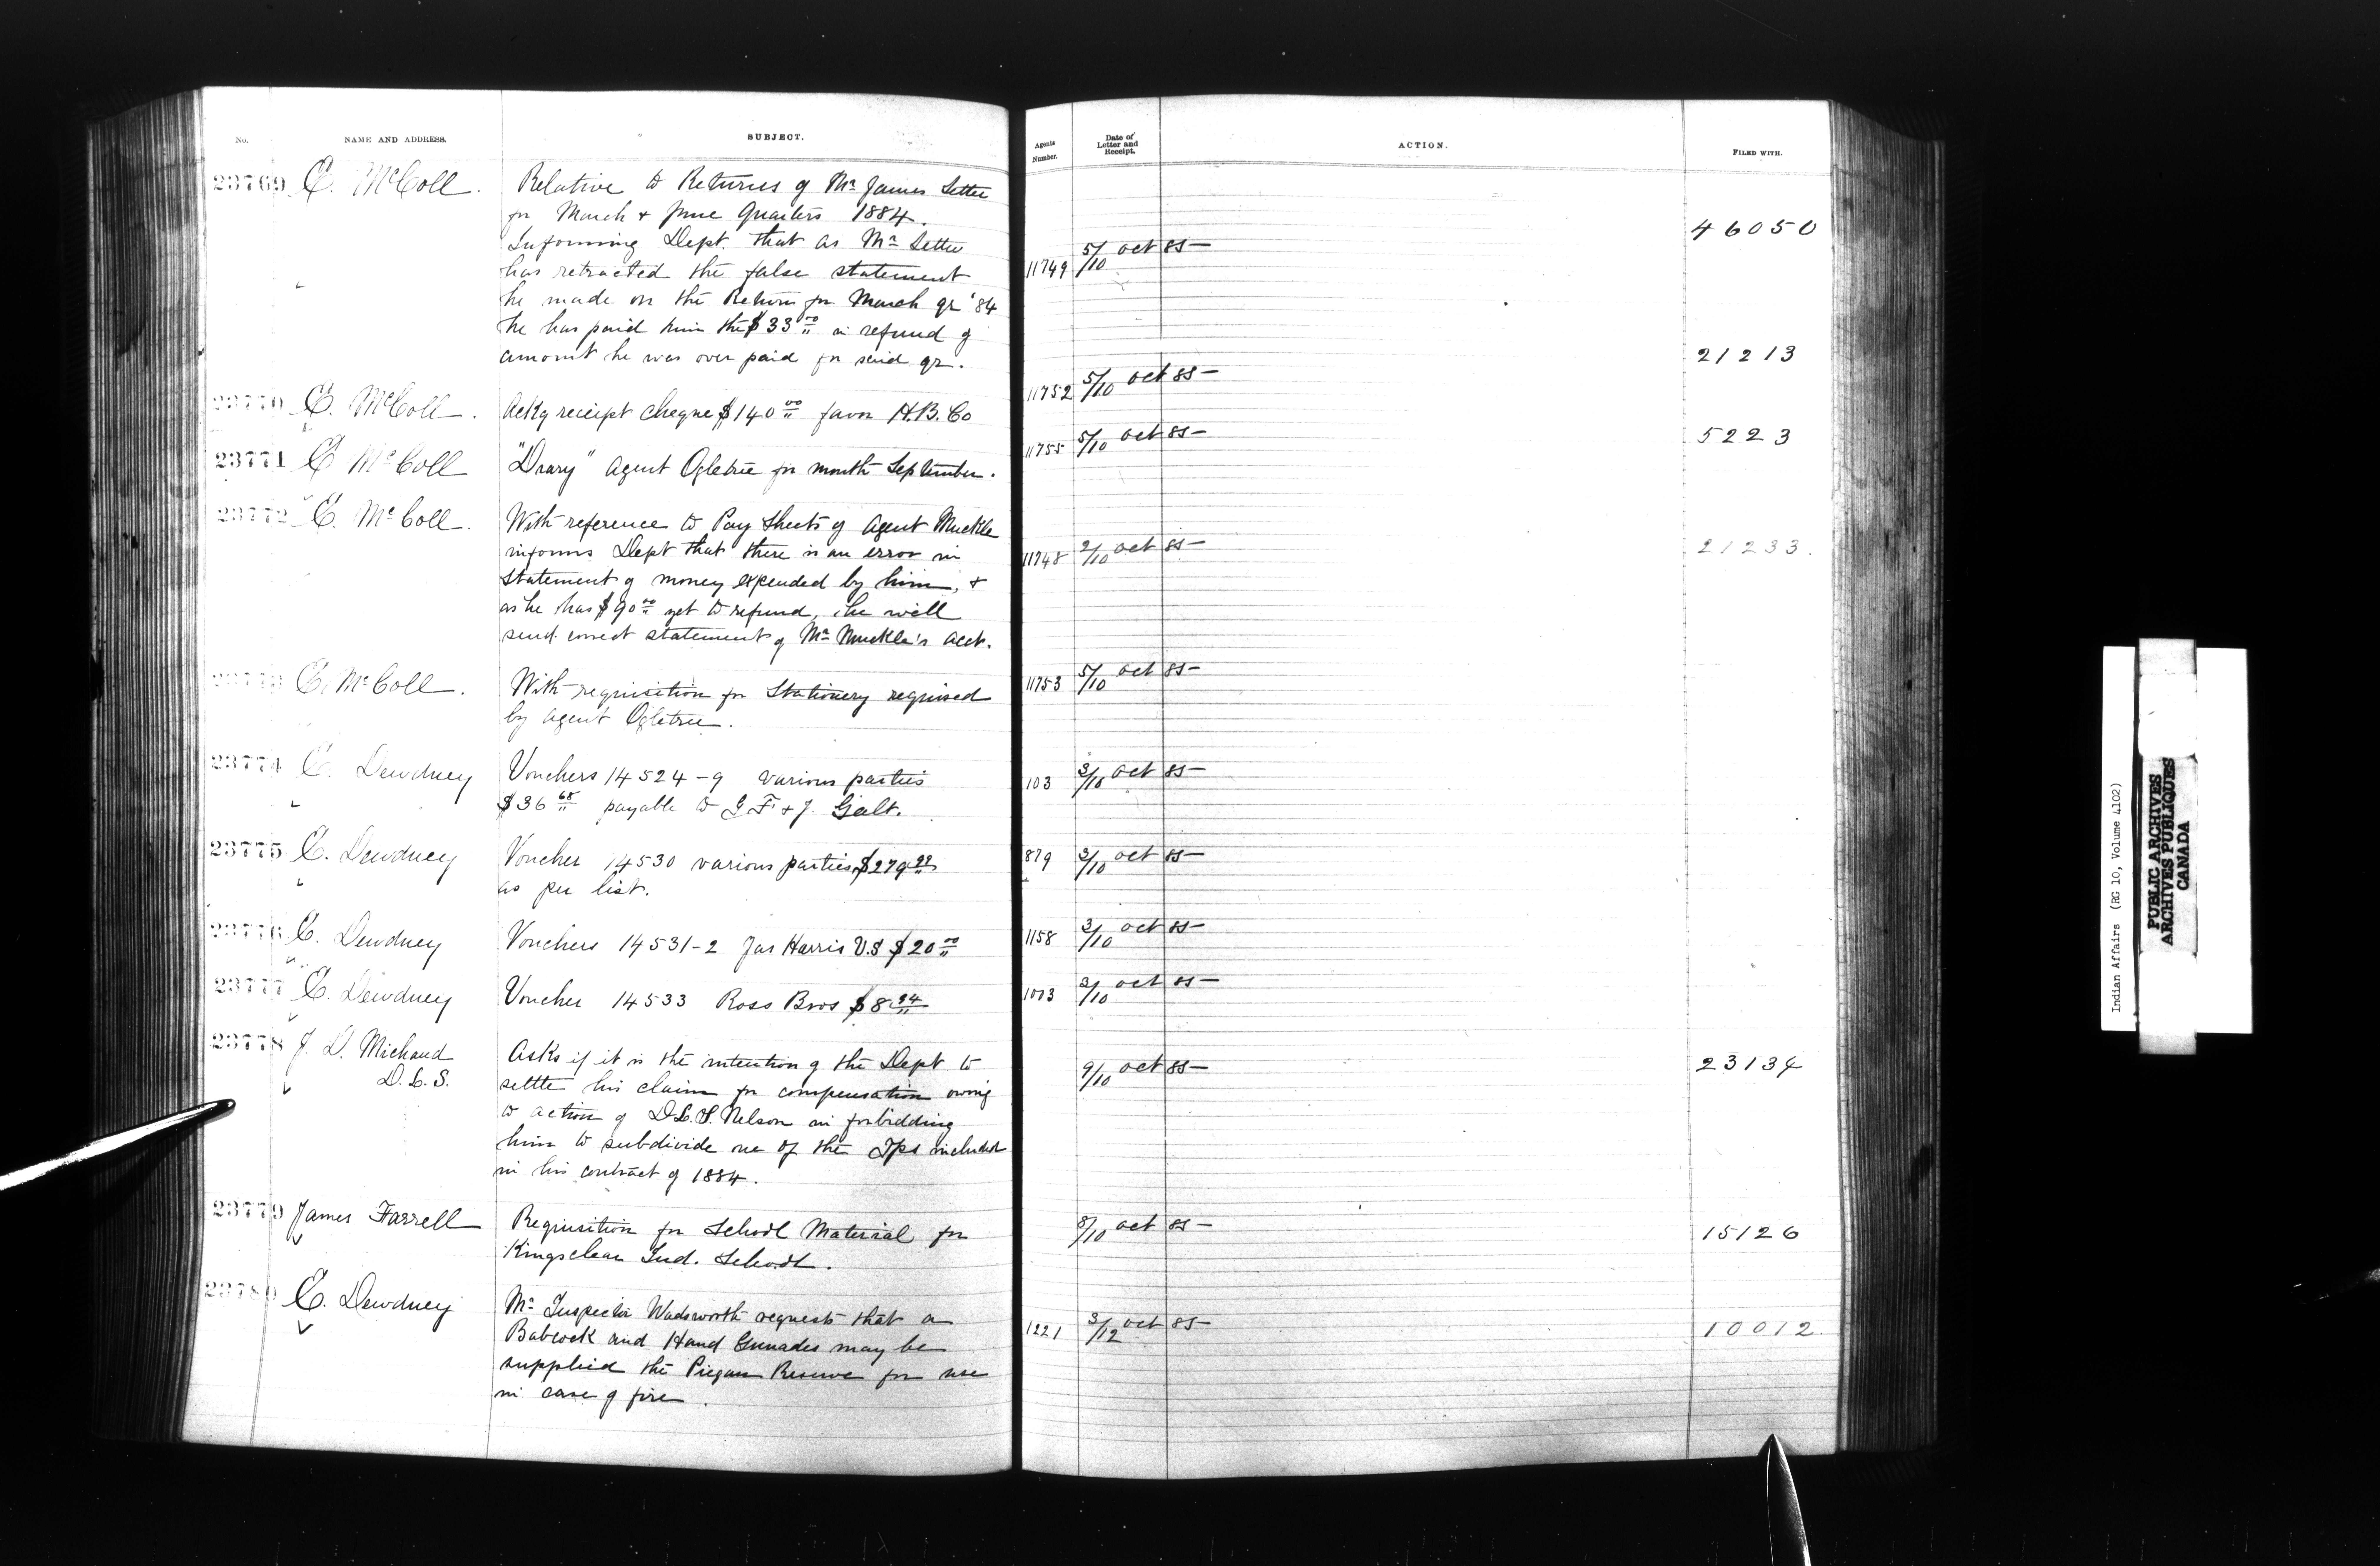 No. NAME AND ADDRESS. SUBJECT. Agents Number. Date of Letter and Receipt. ACTION. FILED WITH.
23769 E. McColl. Relative to Returns of Mr James Settee
for March & June Quarters 1884. 46050
Informing Dept. that as Mr Settee
has retracted the false statement 11749 5/10 Oct 85
he made on the Return for March qr '84
he has paid him the $33 00 in refund of
amount he was over paid for said qr. 21213
23770 E. McColl. Ackg receipt cheque $140 00 favor H.B. Co 11752 5/10 Oct 85
23771 E McColl "Diary" Agent Ogletree for month September. 11755 5/10 Oct 85 5223
23772 E. McColl. With reference to Pay Sheets of Agent Muckle
informs Dept that there is an error in 11748 2/10 Oct 85 21233.
statement of money expended by him, &
as he has $90 00 yet to refund, he will
send correct statement of Mr Muckle's acct.
23773 E. McColl. With requisition for Stationery required 11753 5/10 Oct 85
by Agent Ogletree.
23774 E. Dewdney Vouchers 14524-9 various parties 103 3/10 Oct 85
$36 68 payable to G F & J. Galt.
23775 E. Dewdney Voucher 14530 various parties $279 22 879 3/10 Oct 85
as per list.
23776 E. Dewdney Vouchers 14531-2 Jas Harris V.S $20 00 1158 3/10 Oct 85
23777 E. Dewdney Voucher 14533 Ross Bros $8 34 1003 3/10 Oct 85
23778 J. D. Michaud Asks if it is the intention of the Dept to 9/10 Oct 85 23134
D.L.S. settle his claim for compensation owing
to action of D.L.S. Nelson in forbidding
him to subdivide one of the Tps included
in his contract of 1884.
23779 James Farrell Requisition for School Material for 8/10 Oct 85 15126
Kingsclear Ind. School.
23780 E. Dewdney Mr Inspector Wadsworth requests that a
Babcock and Hand Grenades may be 1221 3/12 Oct 85 10012
supplied the Piegan Reserve for use
in case of fire.
Indian Affairs (RG 10, Volume 4102)
PUBLIC ARCHIVES
ARCHIVES PUBLIQUES
CANADA